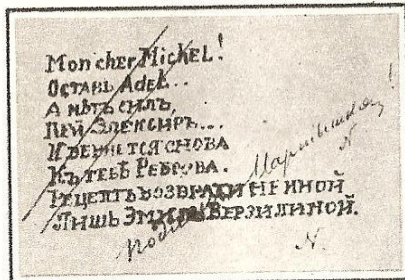 Mon cher Michel!
ОСТАВЬ Adel...
А НѢТЪ СИЛЪ,
ПЕЙ ЭЛЕКСИРЪ...
И ВЕРНЕТСЯ СНОВА
КЪ ТЕБѢ РЕБРОВА.
РЕЦЕПТЪ ВОЗВРАТИ НЕ ИНОЙ
ЛИШЬ ВЕРЗИЛИНОЙ.
N
N.